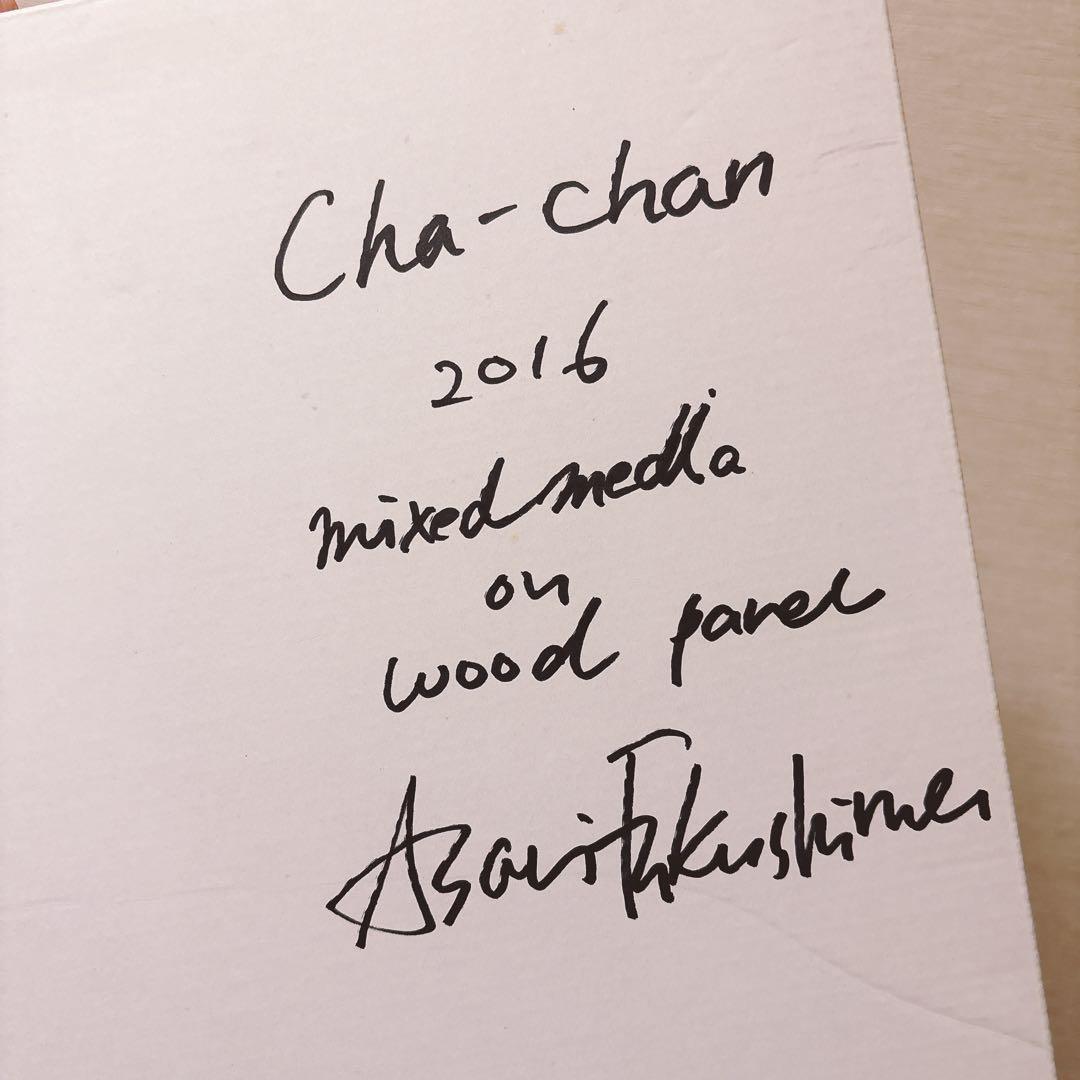 Cha-chan
2016
mixed media
on
wood panel
Asari Fukushima